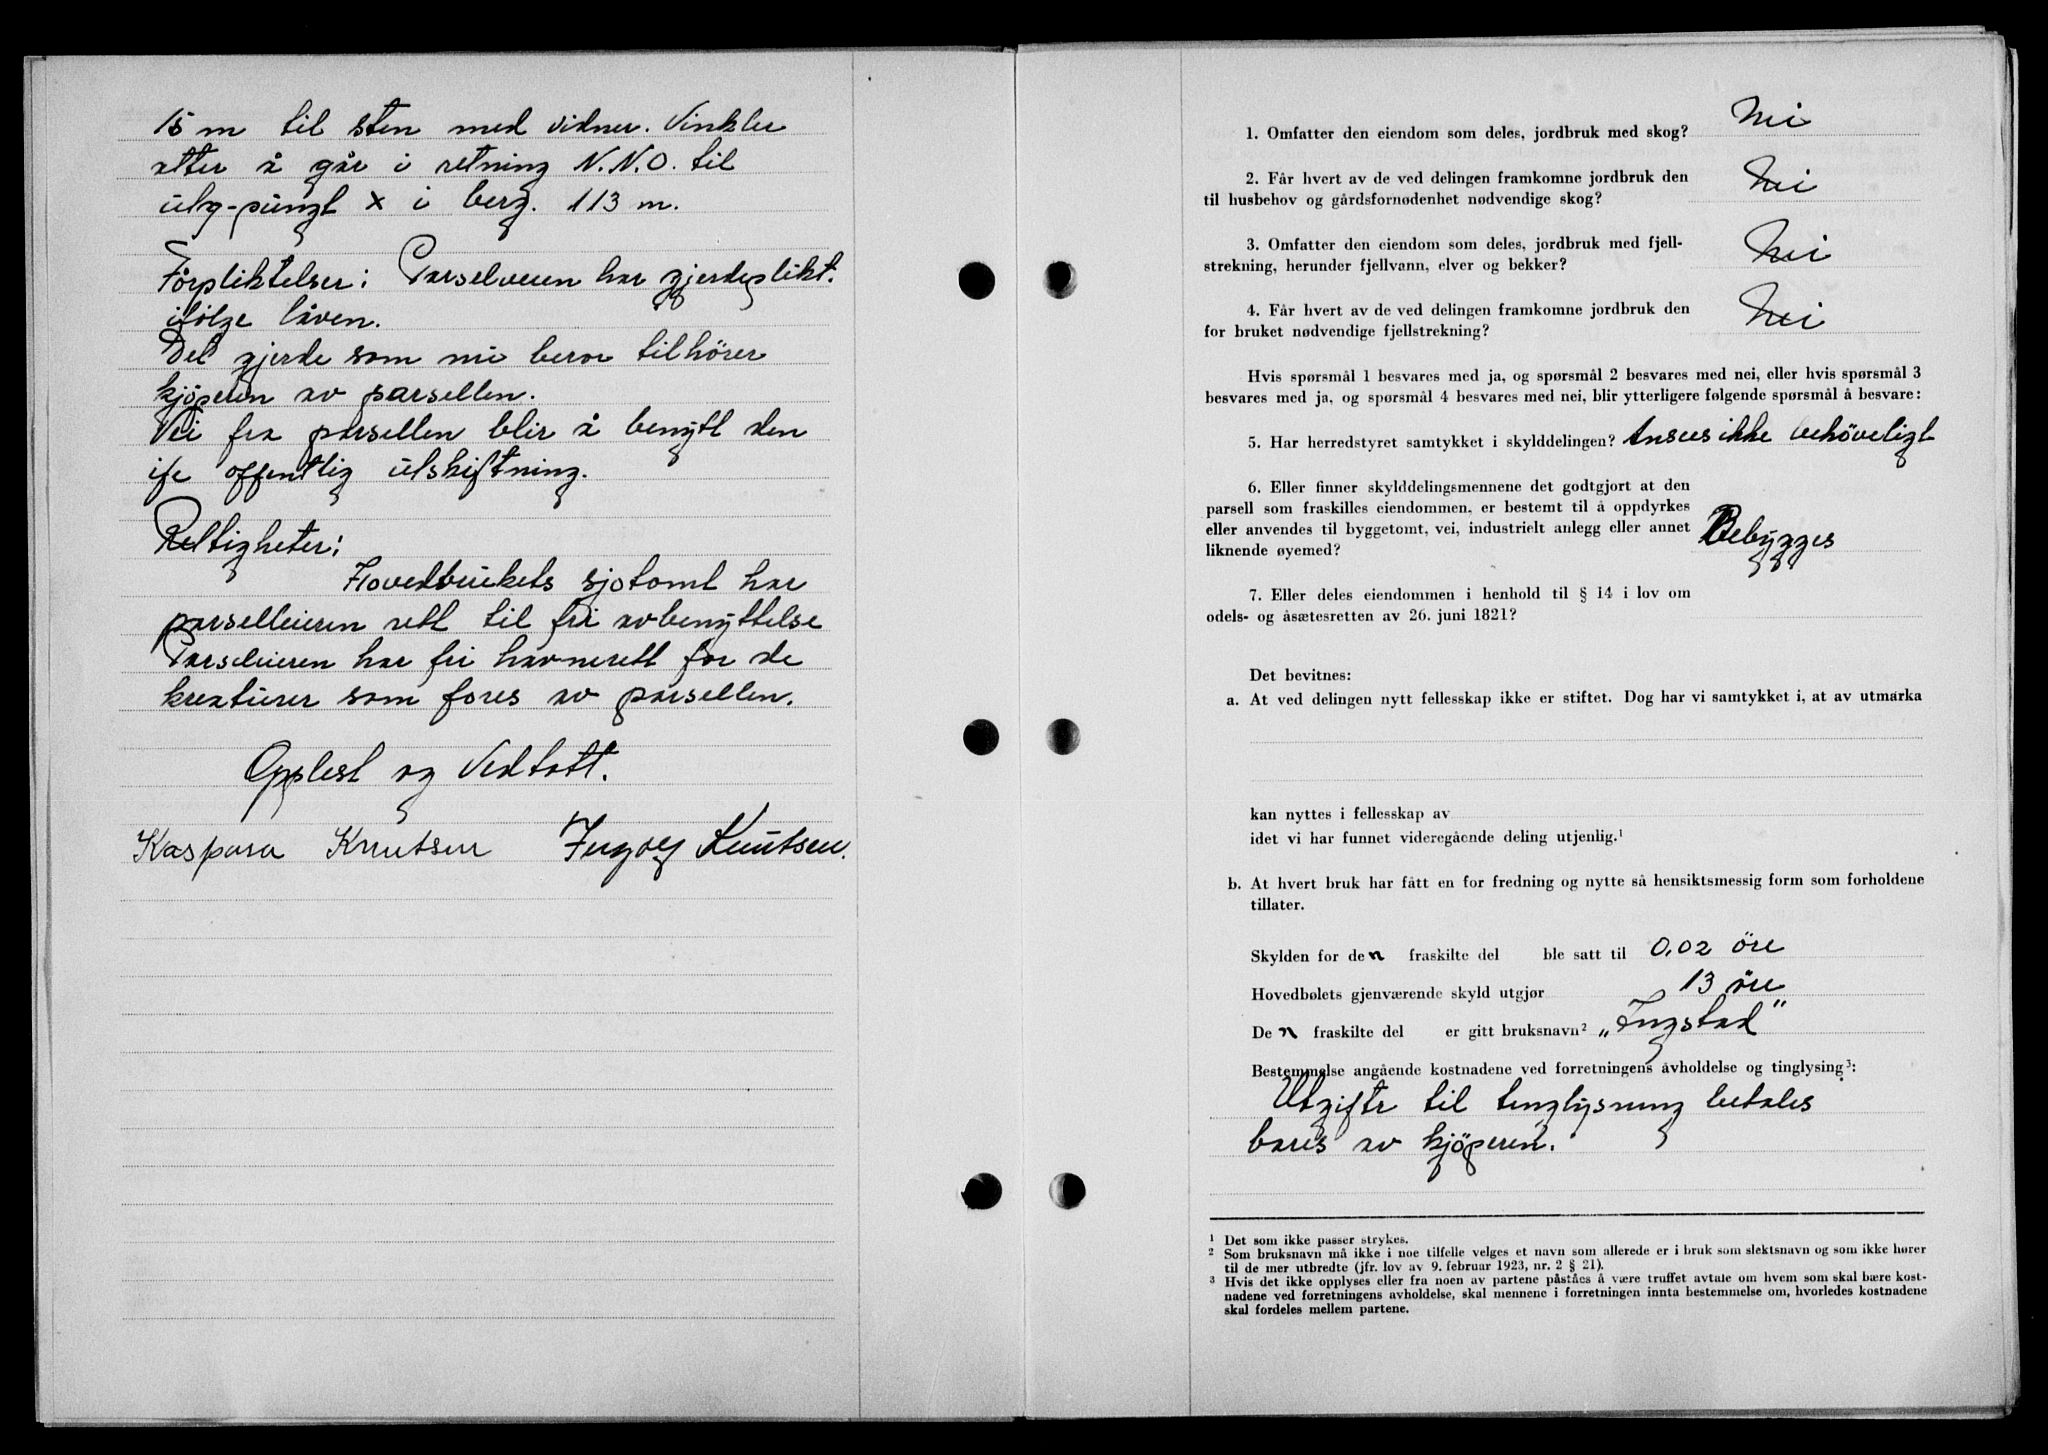 15 m til sten med vidner. Vinkler
atter å går i retning N.N.O. til
utg-pungt x i berg. 113 m.
Forpliktelser: Parseleieren har gjerdeplikt.
ifölge låven.
Del gjerde som nu beror tilhörer
kjøperen av parsellen.
Vei fra parsellen blir å benytt den
ife offentlig utskiftning.
Rettigheter:
Hovedbrukets sjøtomt har
parselleieren rett til fri avbenyttelse
Parseleieren har fri havnerett for de
kreaturer som fores av parsellen.
Opplest og Vedtatt.
Kaspara Knutsen Ingolf Knutsen.
1. Omfatter den eiendom som deles, jordbruk med skog? Nei
2. Får hvert av de ved delingen framkomne jordbruk den
til husbehov og gårdsfornødenhet nødvendige skog? Nei
3. Omfatter den eiendom som deles, jordbruk med fjell-
strekning, herunder fjellvann, elver og bekker? Nei
4. Får hvert av de ved delingen framkomne jordbruk den
for bruket nødvendige fjellstrekning? Nei
Hvis spørsmål 1 besvares med ja, og spørsmål 2 besvares med nei, eller hvis spørsmål 3
besvares med ja, og spørsmål 4 besvares med nei, blir ytterligere følgende spørsmål å besvare:
5. Har herredstyret samtykket i skylddelingen? Ansees ikke behöveligt
6. Eller finner skylddelingsmennene det godtgjort at den
parsell som fraskilles eiendommen, er bestemt til å oppdyrkes
eller anvendes til byggetomt, vei, industrielt anlegg eller annet
liknende øyemed? Bebygges
7. Eller deles eiendommen i henhold til § 14 i lov om
odels- og åsætesretten av 26. juni 1821?
Det bevitnes:
a. At ved delingen nytt fellesskap ikke er stiftet. Dog har vi samtykket i, at av utmarka
kan nyttes i fellesskap av
idet vi har funnet videregående deling utjenlig.¹
b. At hvert bruk har fått en for fredning og nytte så hensiktsmessig form som forholdene
tillater.
Skylden for den fraskilte del ble satt til 0,02 öre
Hovedbølets gjenværende skyld utgjør 13 öre
De n fraskilte del er gitt bruksnavn² „Ingstad"
Bestemmelse angående kostnadene ved forretningens avholdelse og tinglysing³:
Utgifter til tinglysning betales
bares av kjöperen.
¹ Det som ikke passer strykes.
² Som bruksnavn må ikke i noe tilfelle velges et navn som allerede er i bruk som slektsnavn og som ikke hører
til de mer utbredte (jfr. lov av 9. februar 1923, nr. 2 § 21).
³ Hvis det ikke opplyses eller fra noen av partene påståes å være truffet avtale om hvem som skal bære kost-
nadene ved forretningens avholdelse, skal mennene i forretningen innta bestemmelse om, hvorledes kostnadene
skal fordeles mellem partene.